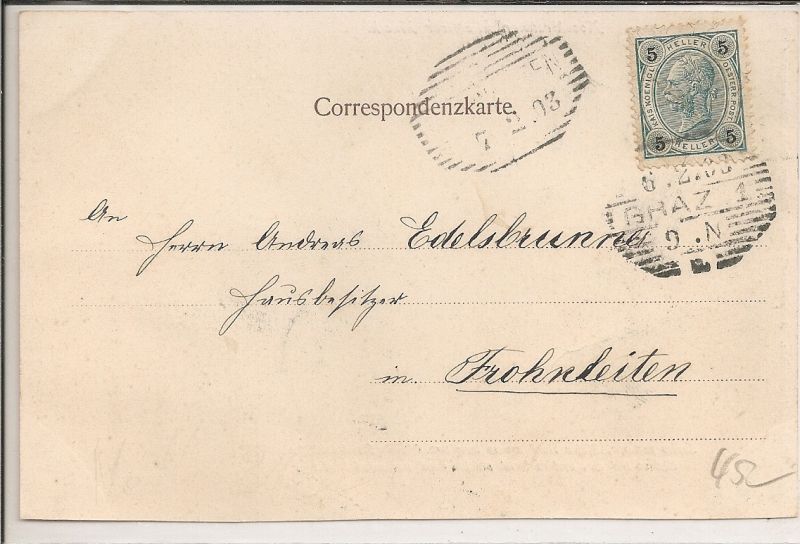 Correspondenzkarte.
7 2.03
5 HELLER 5
KAIS. KOENIGL. OESTERR. POST
5 HELLER 5
6.2.03
GRAZ 1
9.N
An
Herrn Andreas Edelsbrunner
Hausbesitzer
in Frohnleiten
452